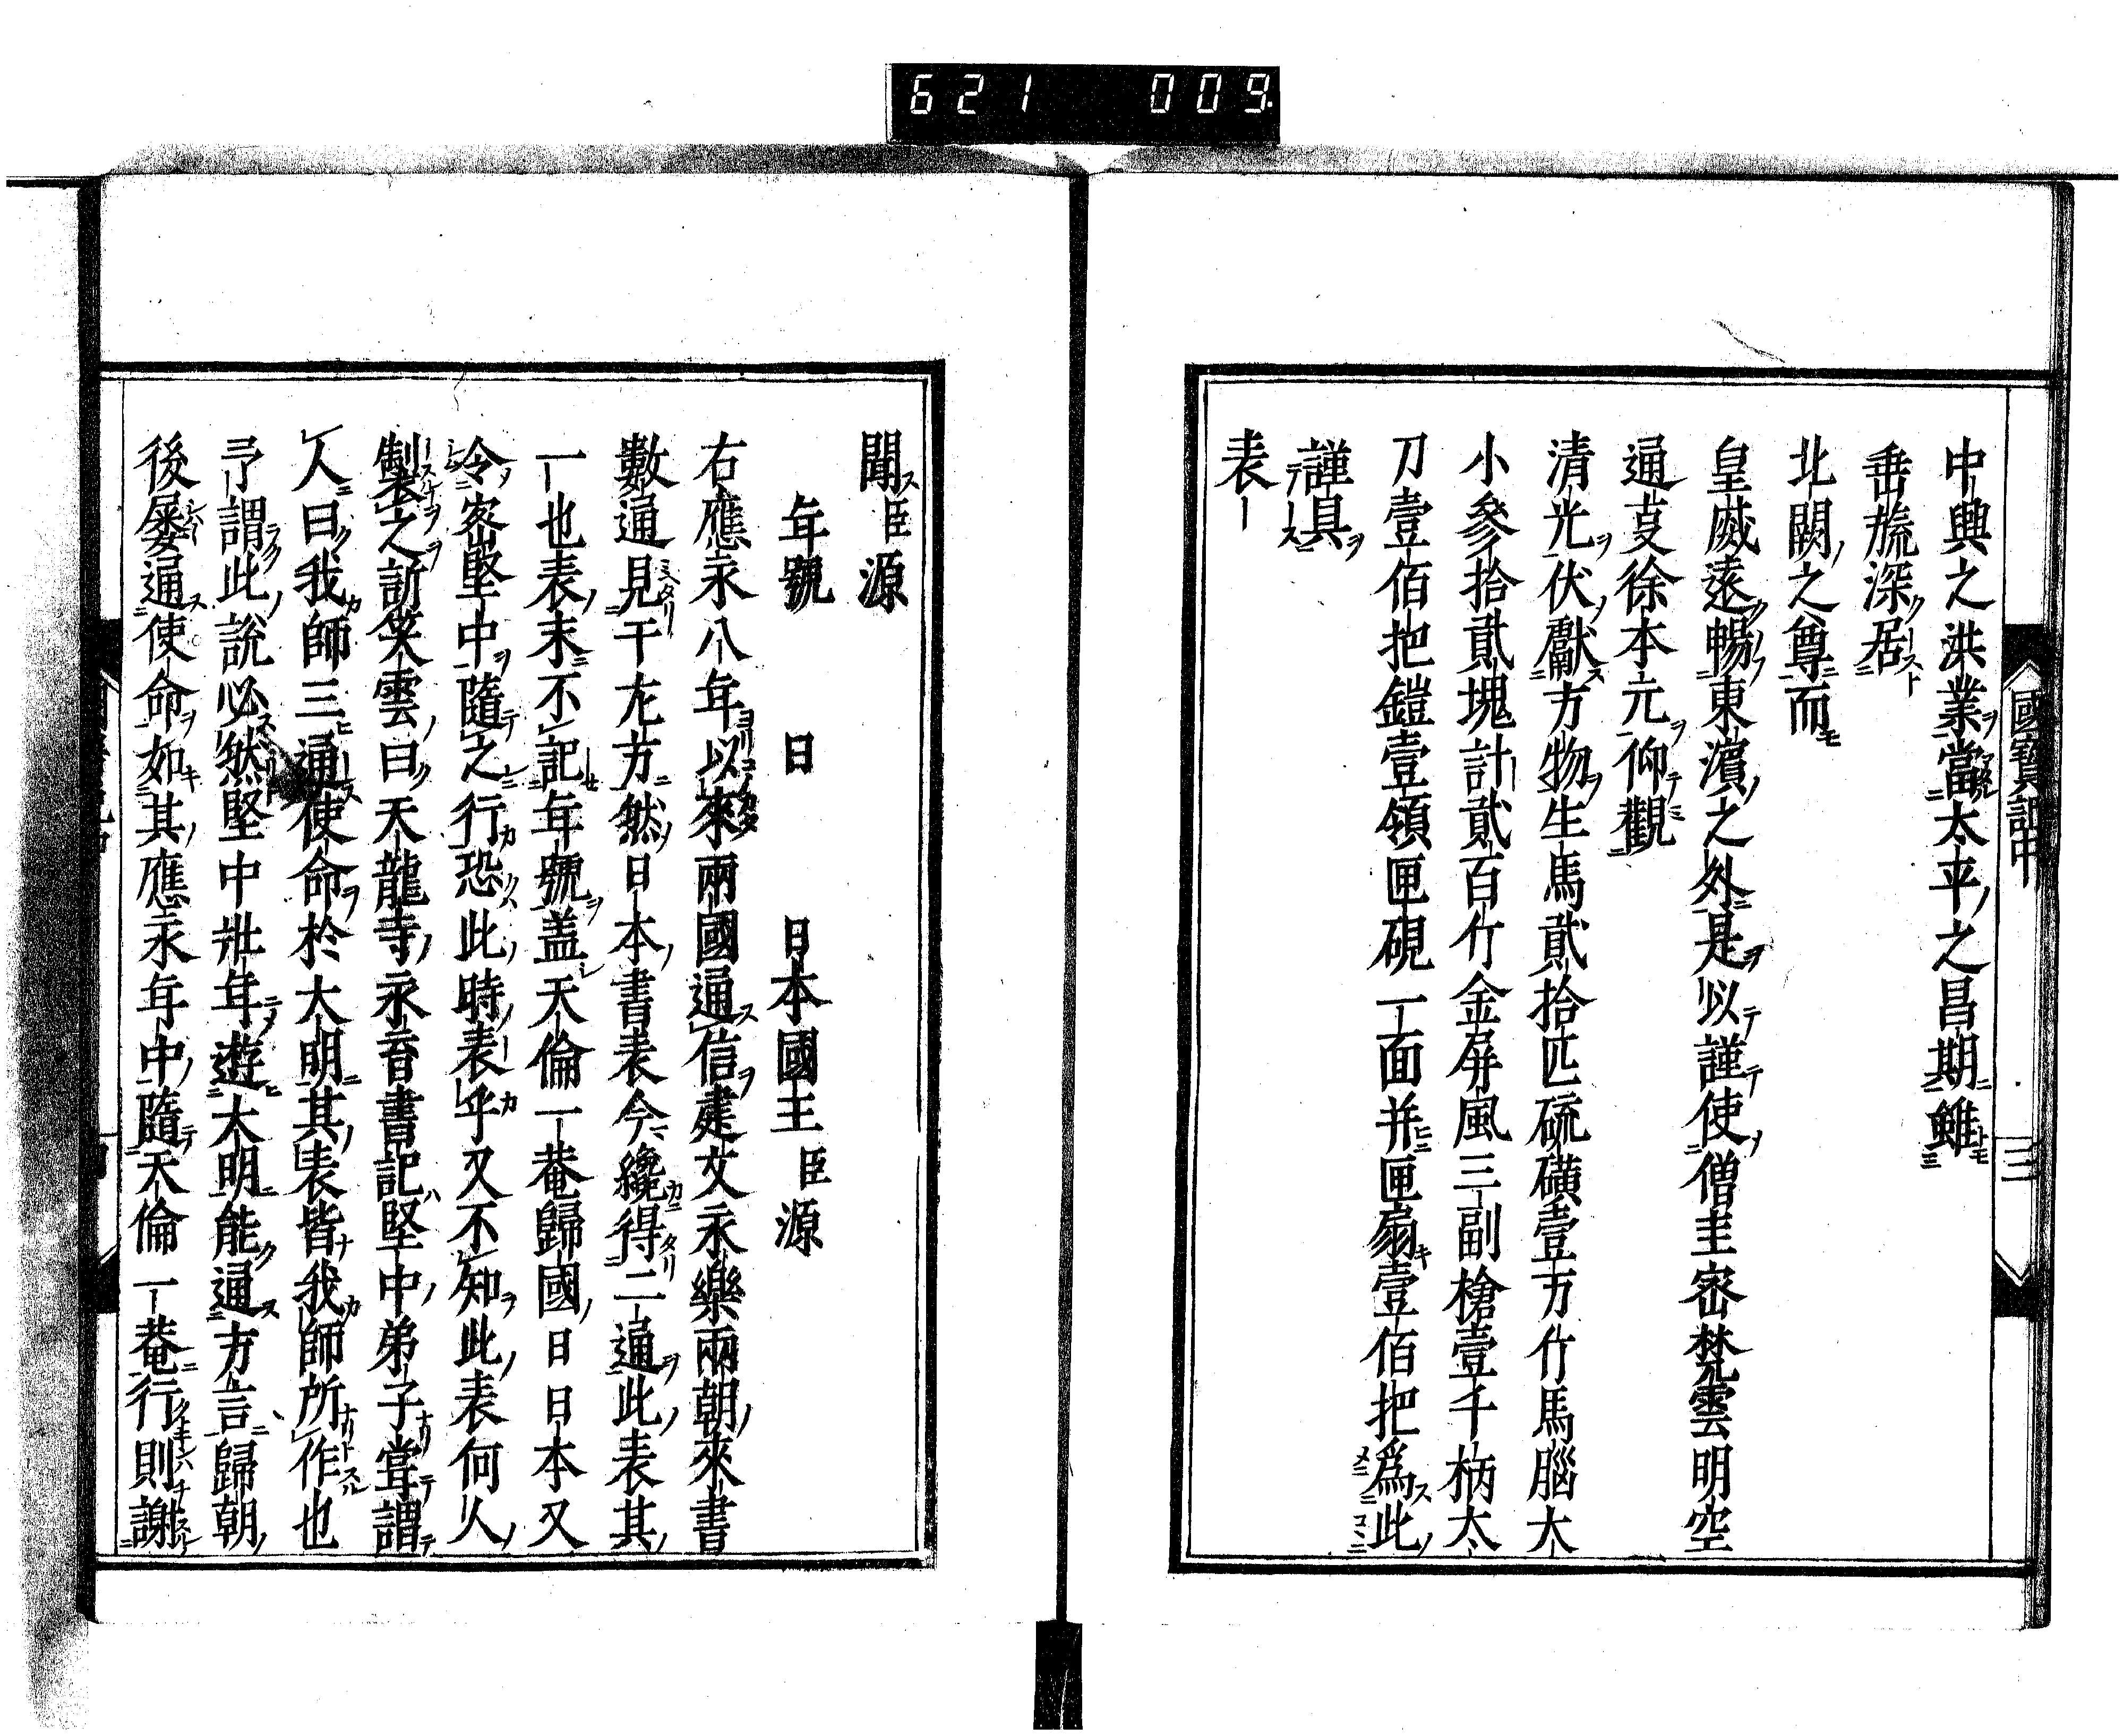 621 009
國寶記中
三
中興之洪業當太平之昌期雖
垂旒深居
北闕之尊而
皇威遠暢東濵之外是以謹使僧圭密梵雲明空
通叓徐本元仰觀
清光伏獻方物生馬貳拾匹硫磺壹万斤馬腦大
小參拾貳塊計貳百斤金屏風三副槍壹千柄太
刀壹佰把鎧壹領匣硯一面并匣扇壹佰把爲此
謹具
表
聞臣源
年號 日 日本國王臣源
右應永八年以來兩國通信建文永樂兩朝來書
數通見于左方然日本書表今纔得二通此表其
一也表末不記年號盖天倫一菴歸國日日本又
令密堅中隨之行恐此時表乎又不知此表何人
製之訢笑雲曰天龍寺永育書記堅中弟子嘗謂
人曰我師三通使命於大明其表皆我師所作也
予謂此說必然堅中壯年遊大明能通方言歸朝
後屡通使命如其應永年中隨天倫一菴行則謝